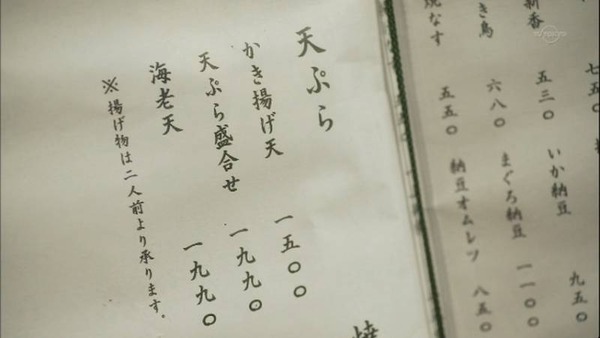 焼なす 五五〇
き鳥 六八〇
新香 五三〇
七五〇
納豆オムレツ 八五〇
まぐろ納豆 一一〇〇
いか納豆 九五〇
天ぷら
かき揚げ天 一五〇〇
天ぷら盛合せ 一九九〇
海老天 一九九〇
※揚げ物は二人前より承ります。
焼